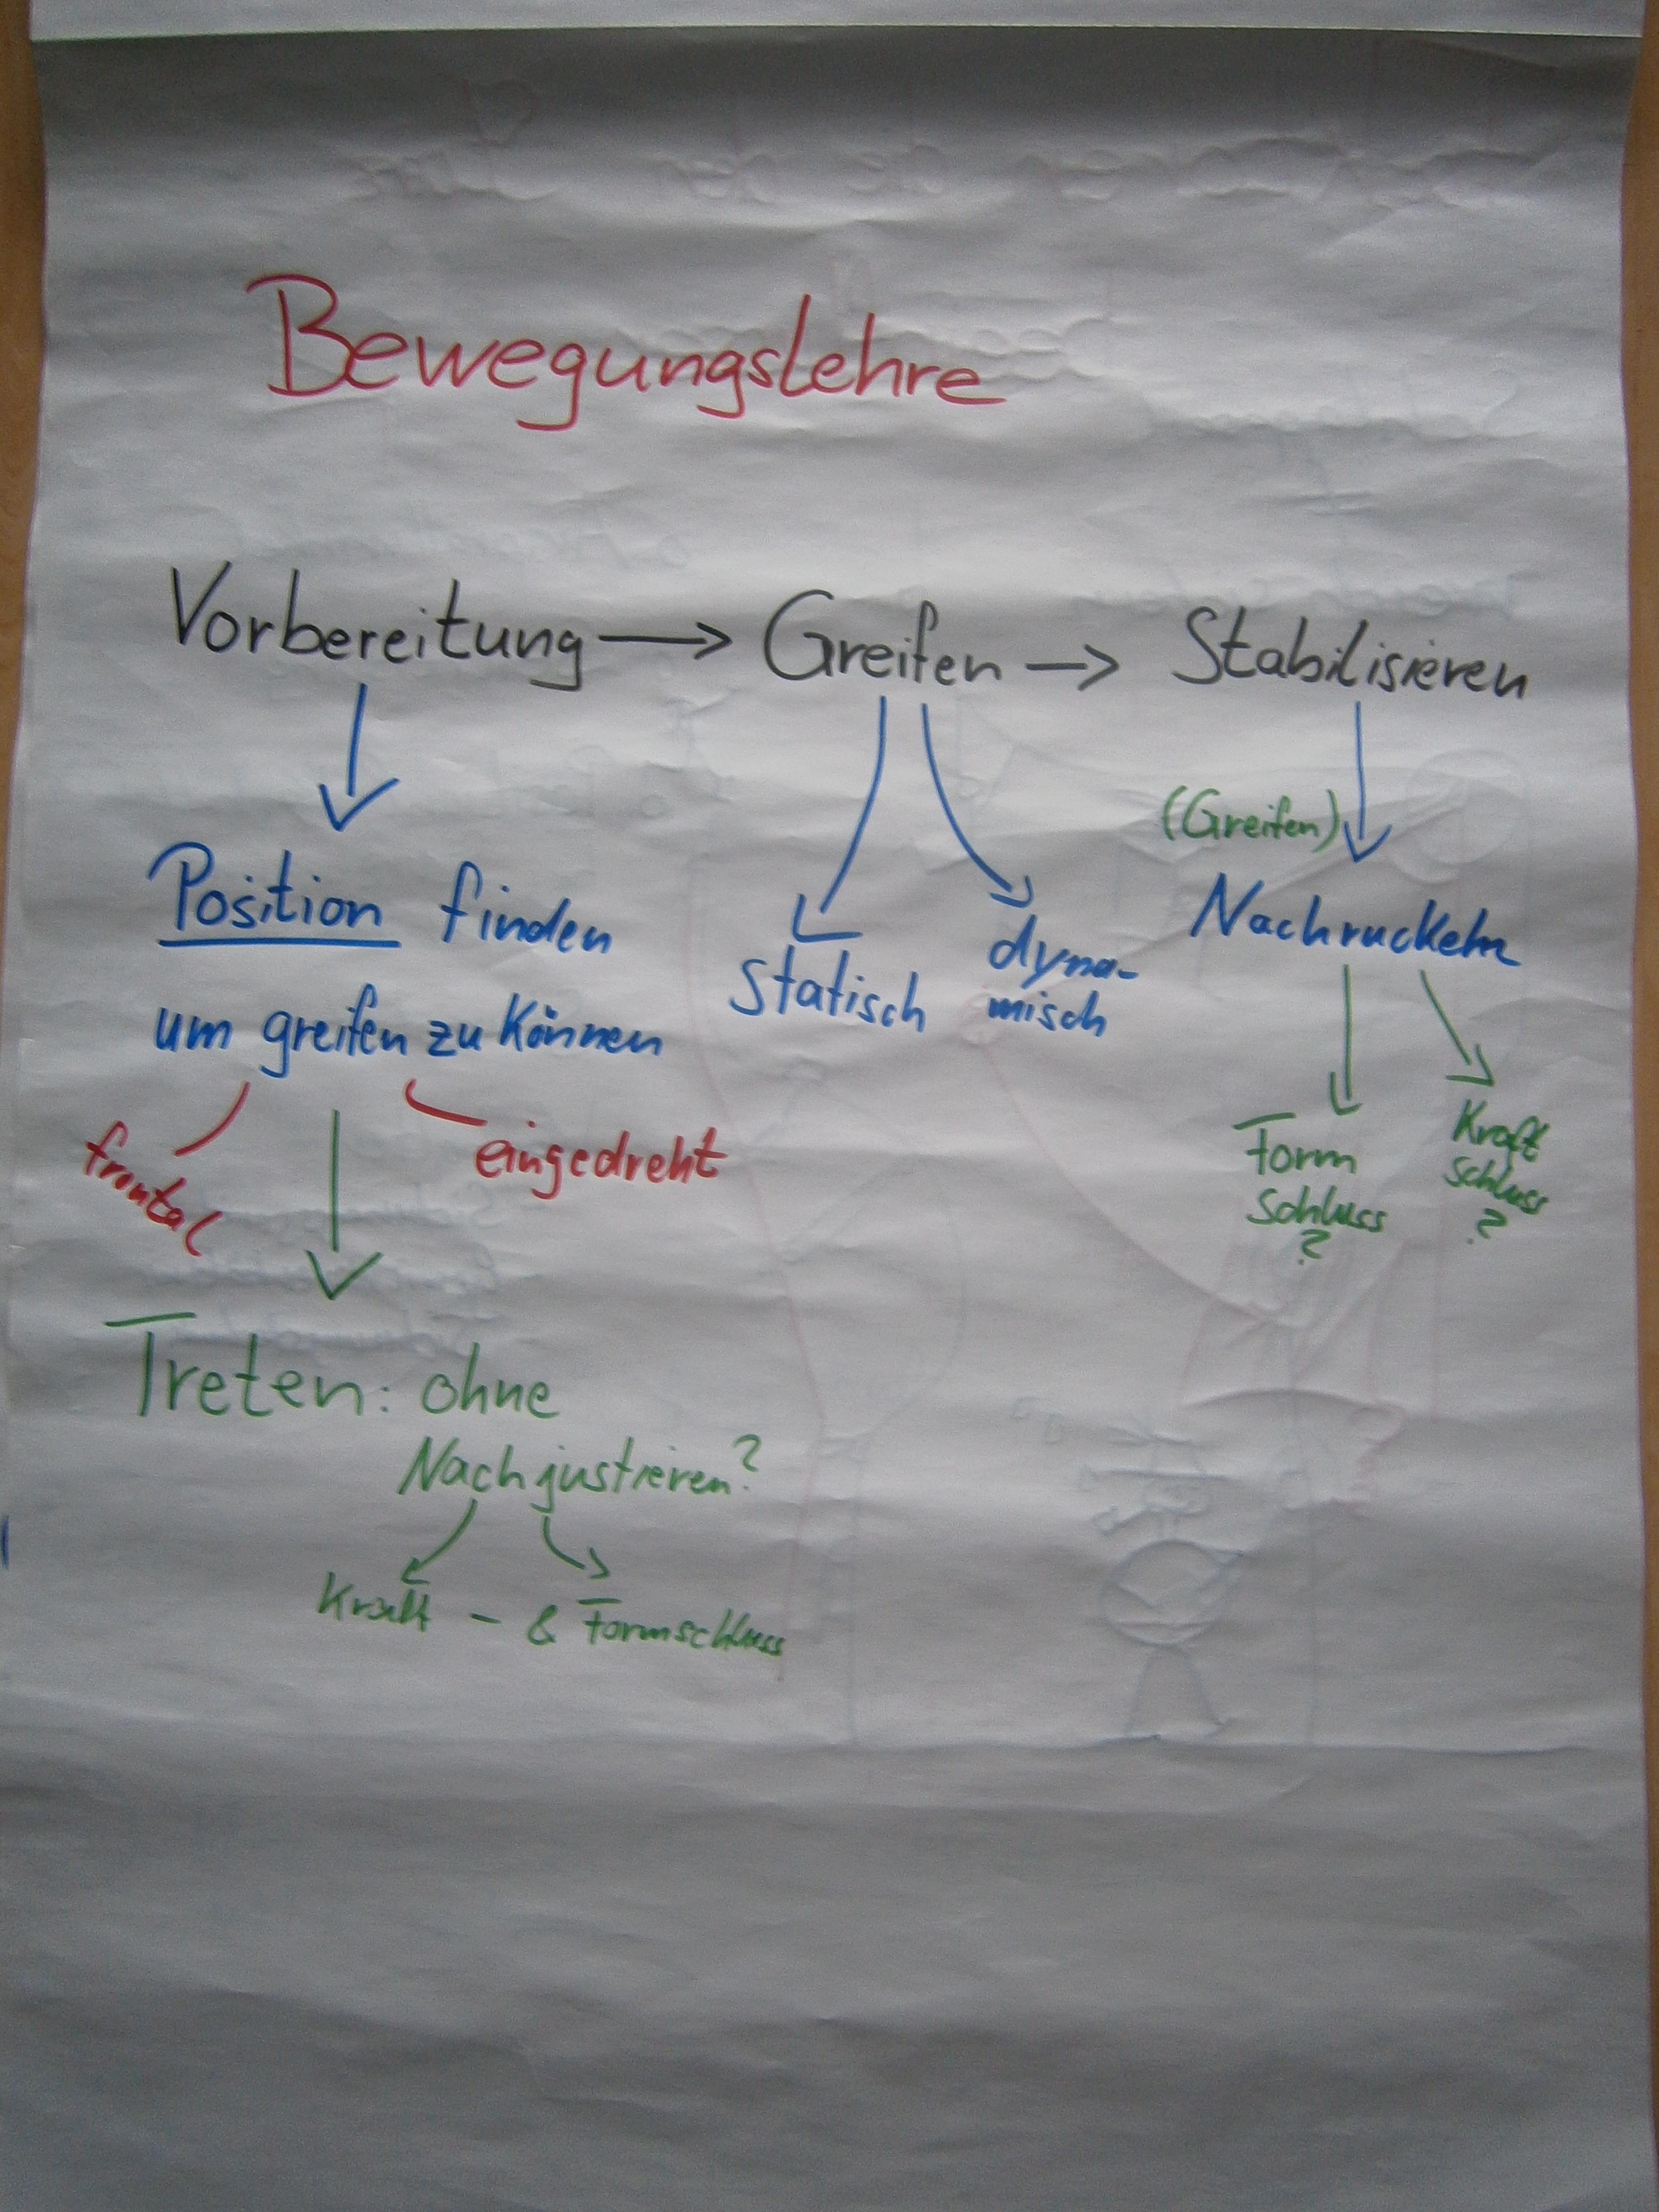 Bewegungslehre
Vorbereitung → Greifen → Stabilisieren
Position finden
um greifen zu können
frontal
eingedreht
Treten: ohne
Nachjustieren?
Kraft - & Formschluss
statisch
dyna-
misch
(Greifen)
Nachruckeln
Form
schluss
?
Kraft
schluss
?